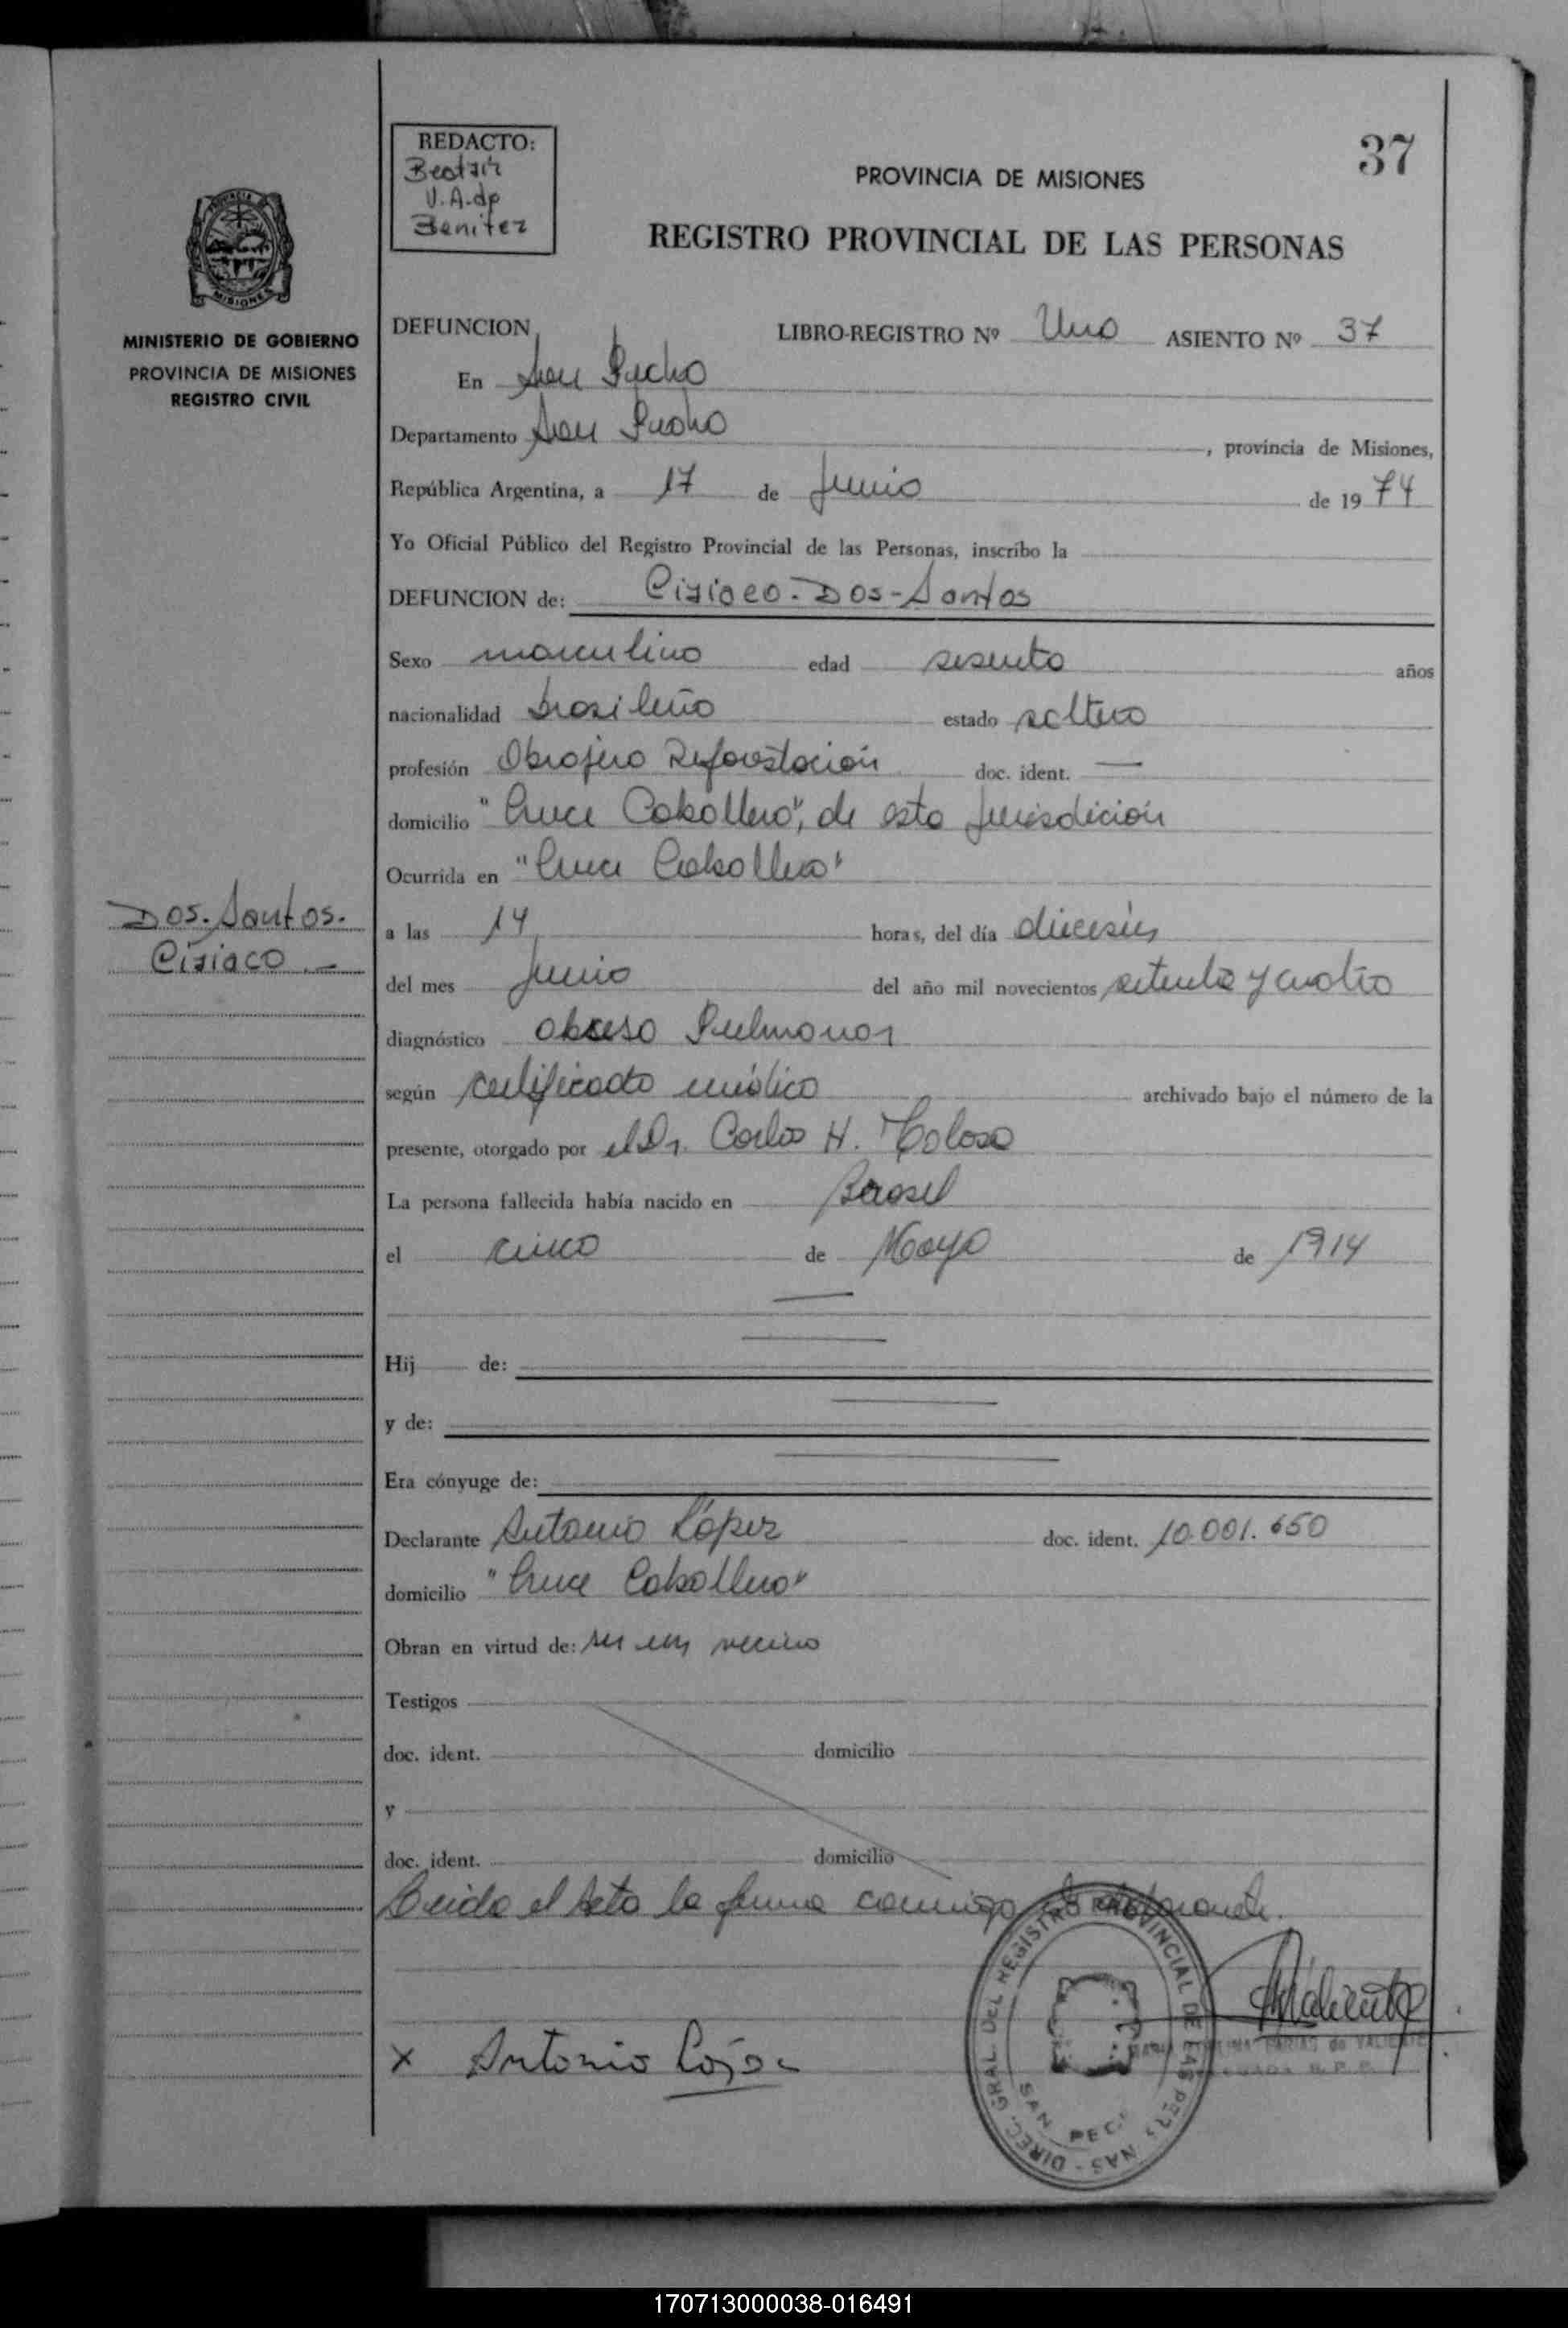 37
REDACTO:
Beatriz
V. A. de
Benitez
PROVINCIA DE MISIONES
REGISTRO PROVINCIAL DE LAS PERSONAS
MISIONES
MINISTERIO DE GOBIERNO
PROVINCIA DE MISIONES
REGISTRO CIVIL
DEFUNCION LIBRO-REGISTRO Nº Uno ASIENTO Nº 37
En San Pedro
Departamento San Pedro, provincia de Misiones,
República Argentina, a 17 de Junio de 1974
Yo Oficial Público del Registro Provincial de las Personas, inscribo la
DEFUNCION de: Ciriaco - Dos - Santos
Sexo masculino edad sesenta años
nacionalidad brasileño estado soltero
profesión Obrajero Reforestación doc. ident. —
domicilio "Cruce Caballero", de esta jurisdición
Ocurrida en "Cruce Caballero"
Dos. Santos.
Ciriaco.-
a las 14 horas, del día dieciseis
del mes Junio del año mil novecientos setenta y cuatro
diagnóstico absceso Pulmonar
según certificado médico archivado bajo el número de la
presente, otorgado por el Dr. Carlos H. Tolosa
La persona fallecida había nacido en Brasil
el cinco de Mayo de 1914
Hij de:
y de:
Era cónyuge de:
Declarante Antonio López doc. ident. 10.001.650
domicilio "Cruce Caballero"
Obran en virtud de: ser un vecino
Testigos
doc. ident. domicilio
y
doc. ident. domicilio
Leida el Acta la firma conmigo el declarante.
DIREC. GRAL. DEL REGISTRO PROVINCIAL DE LAS PERSONAS
SAN PEDRO
Valiente
FARIAS de VALIENTE
R. P. P.
x Antonio
170713000038-016491